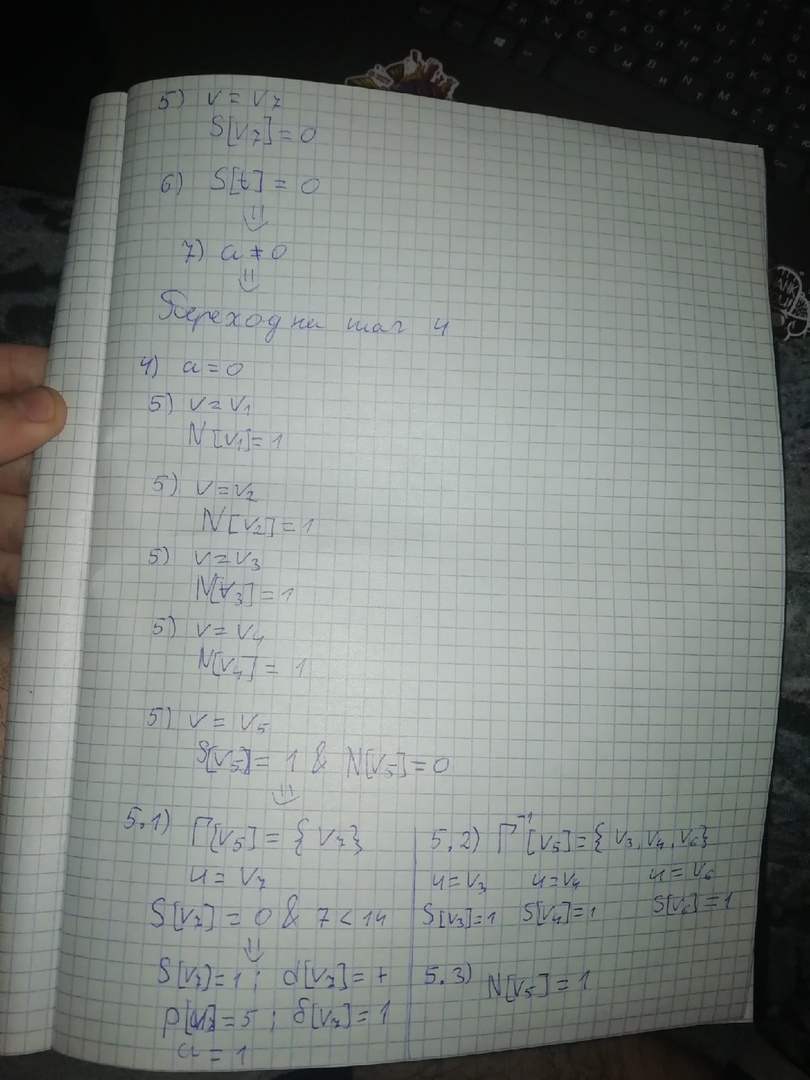 5) v = v₇
S[v₇] = 0
6) S[t] = 0
⇓
7) a ≠ 0
⇓
Переход на шаг 4
4) a = 0
5) v = v₁
N[v₁] = 1
5) v = v₂
N[v₂] = 1
5) v = v₃
N[v₃] = 1
5) v = v₄
N[v₄] = 1
5) v = v₅
S[v₅] = 1 & N[v₅] = 0
⇓
5.1) Γ[v₅] = {v₇}
u = v₇
S[v₇] = 0 & 7 < 14
⇓
S[v₇] = 1; d[v₇] = +
p[v₇] = 5; δ[v₇] = 1
a = 1
5.2) Γ⁻¹[v₅] = {v₃, v₄, v₆}
u = v₃ u = v₄ u = v₆
S[v₃] = 1 S[v₄] = 1 S[v₆] = 1
5.3) N[v₅] = 1